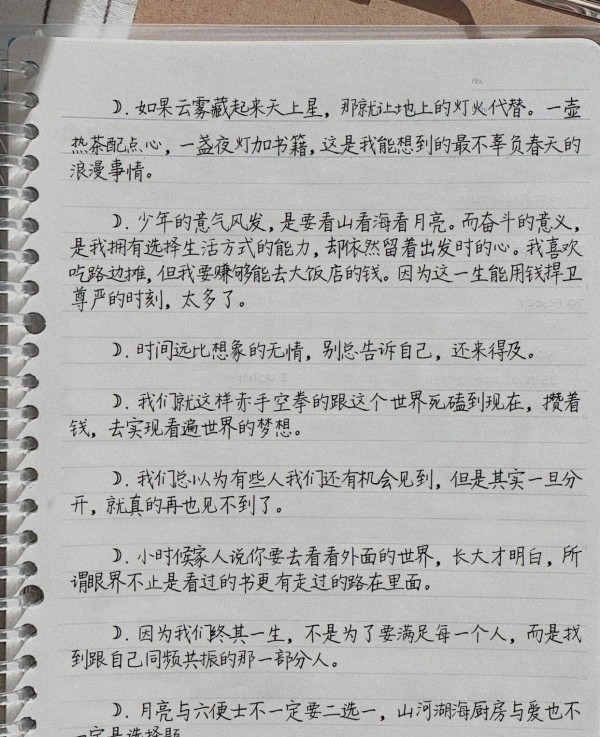 ☽. 如果云雾藏起来天上星，那就让地上的灯火代替。一壶
热茶配点心，一盏夜灯加书籍，这是我能想到的最不辜负春天的
浪漫事情。
☽. 少年的意气风发，是要看山看海看月亮。而奋斗的意义，
是我拥有选择生活方式的能力，却依然留着出发时的心。我喜欢
吃路边摊，但我要赚够能去大饭店的钱。因为这一生能用钱捍卫
尊严的时刻，太多了。
☽. 时间远比想象的无情，别总告诉自己，还来得及。
☽. 我们就这样赤手空拳的跟这个世界死磕到现在，攒着
钱，去实现看遍世界的梦想。
☽. 我们总以为有些人我们还有机会见到，但是其实一旦分
开，就真的再也见不到了。
☽. 小时候家人说你要去看看外面的世界，长大才明白，所
谓眼界不止是看过的书更有走过的路在里面。
☽. 因为我们终其一生，不是为了要满足每一个人，而是找
到跟自己同频共振的那一部分人。
☽. 月亮与六便士不一定要二选一，山河湖海厨房与爱也不
一定是选择题